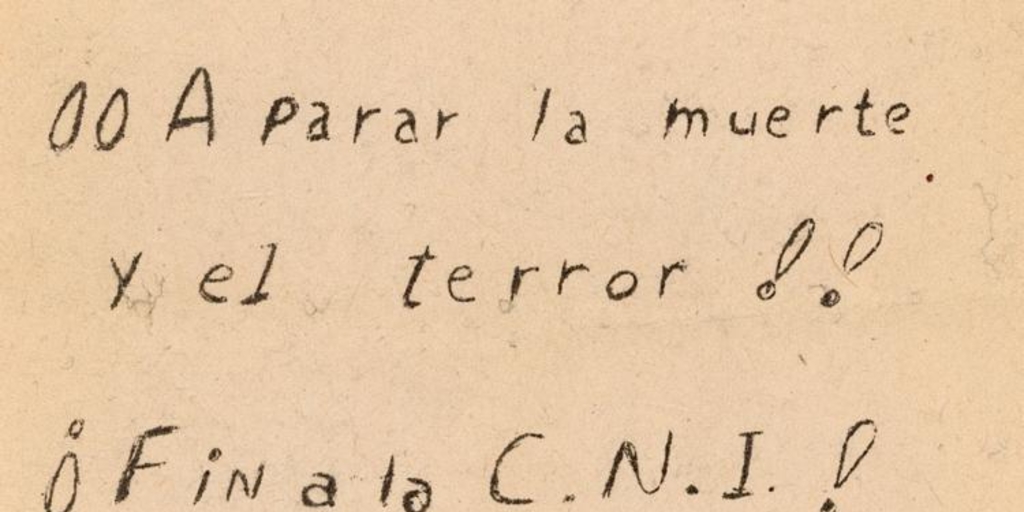 ¡¡A parar la muerte
y el terror !!
¡Fin a la C.N.I.!